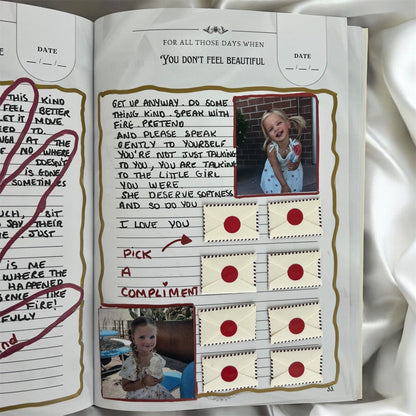 THIS KIND
FEEL BETTER
LET IT MOVE
NEED TO.
LAUGH AT THE
NO WHERE
DOESN'T
IS GONE
SOMETIMES
MUCH, BIT
SAY THEIR
JUST
IS ME
WHERE THE
HAPPENED
LIKE
FIRE!
FULLY
and
DATE
__/__/__
FOR ALL THOSE DAYS WHEN
YOU DON'T FEEL BEAUTIFUL
DATE
__/__/__
GET UP ANYWAY. DO SOME
THING KIND. SPEAK WITH
FIRE. PRETEND
AND PLEASE SPEAK
GENTLY TO YOURSELF
YOU'RE NOT JUST TALKING
TO YOU, YOU ARE TALKING
TO THE LITTLE GIRL
YOU WERE.
SHE DESERVE SOFTNESS
AND SO DO YOU
I LOVE YOU
PICK
A
COMPLIMENT
33